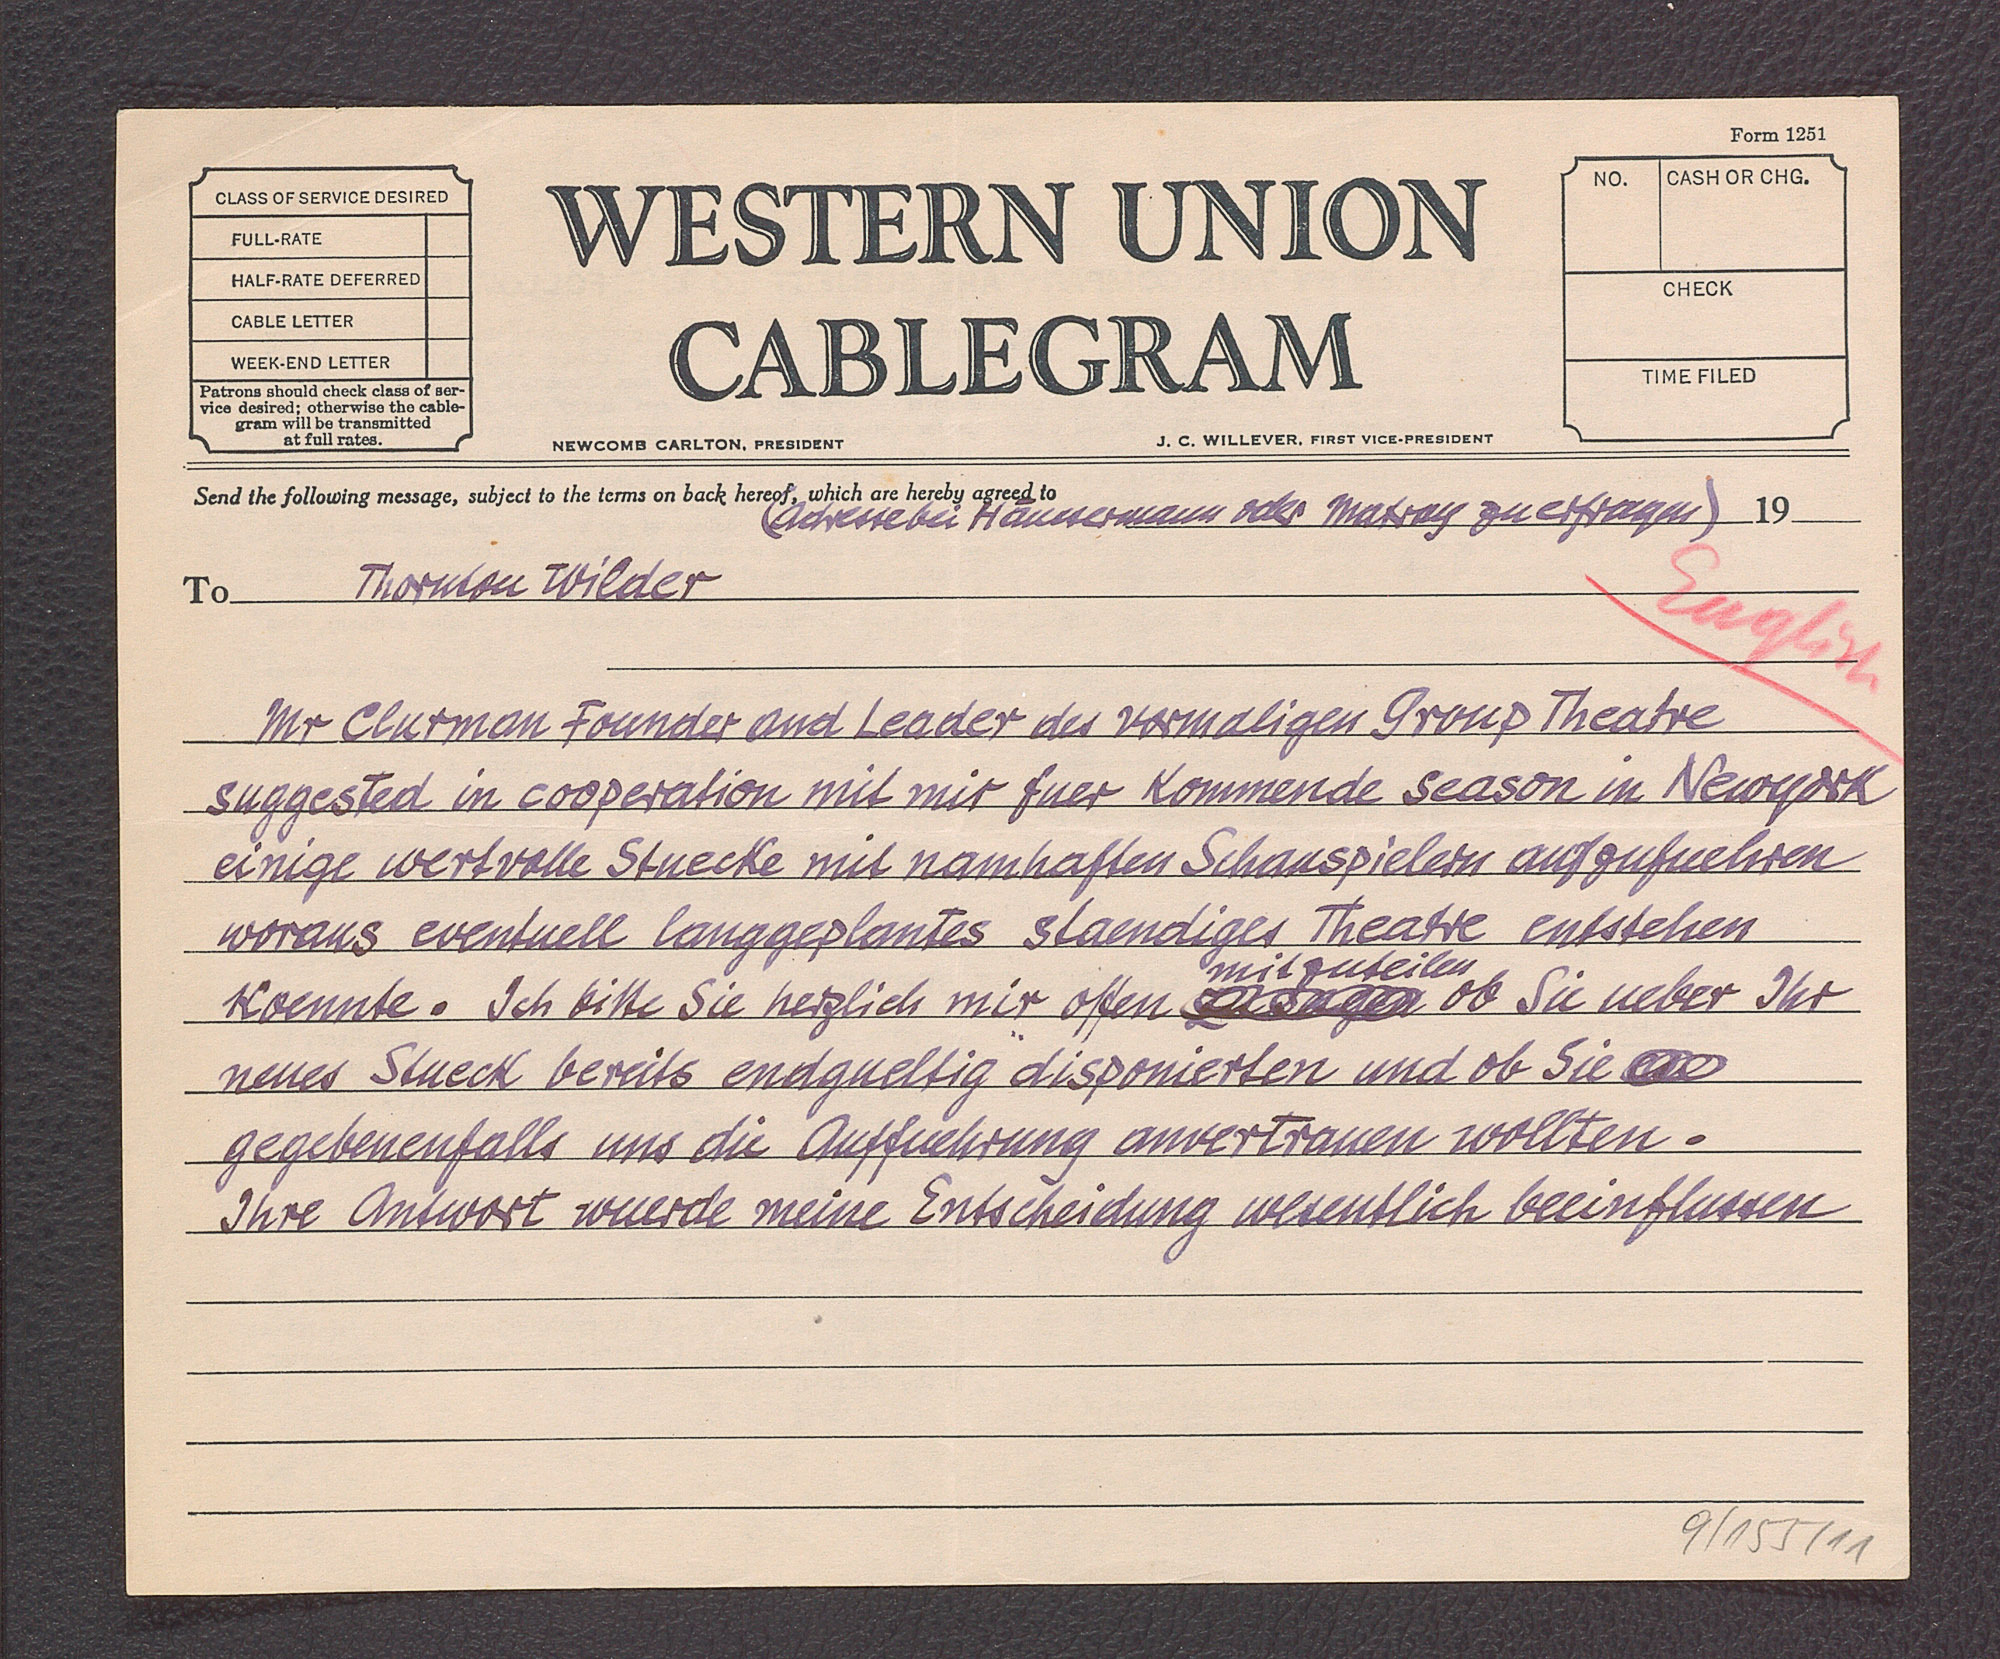 Form 1251
CLASS OF SERVICE DESIRED
FULL-RATE
HALF-RATE DEFERRED
CABLE LETTER
WEEK-END LETTER
Patrons should check class of ser-
vice desired; otherwise the cable-
gram will be transmitted
at full rates.
WESTERN UNION
CABLEGRAM
NEWCOMB CARLTON, PRESIDENT
J. C. WILLEVER, FIRST VICE-PRESIDENT
NO.
CASH OR CHG.
CHECK
TIME FILED
Send the following message, subject to the terms on back hereof, which are hereby agreed to
(Adresse bei Häussermann oder Matray zu erfragen) 19
To Thornton Wilder
English
Mr Clurman Founder and Leader des vormaligen Group Theatre
suggested in cooperation mit mir fuer kommende season in Newyork
einige wertvolle Stuecke mit namhaften Schauspielern aufzufuehren
woraus eventuell langgeplantes staendiges Theatre entstehen
mitzuteilen
koennte. Ich bitte Sie herzlich mir offen zu sagen ob Sie ueber Ihr
neues Stueck bereits endgueltig disponierten und ob Sie
gegebenenfalls uns die Auffuehrung anvertrauen wollten.
Ihre Antwort wuerde meine Entscheidung wesentlich beeinflussen
9/155/11